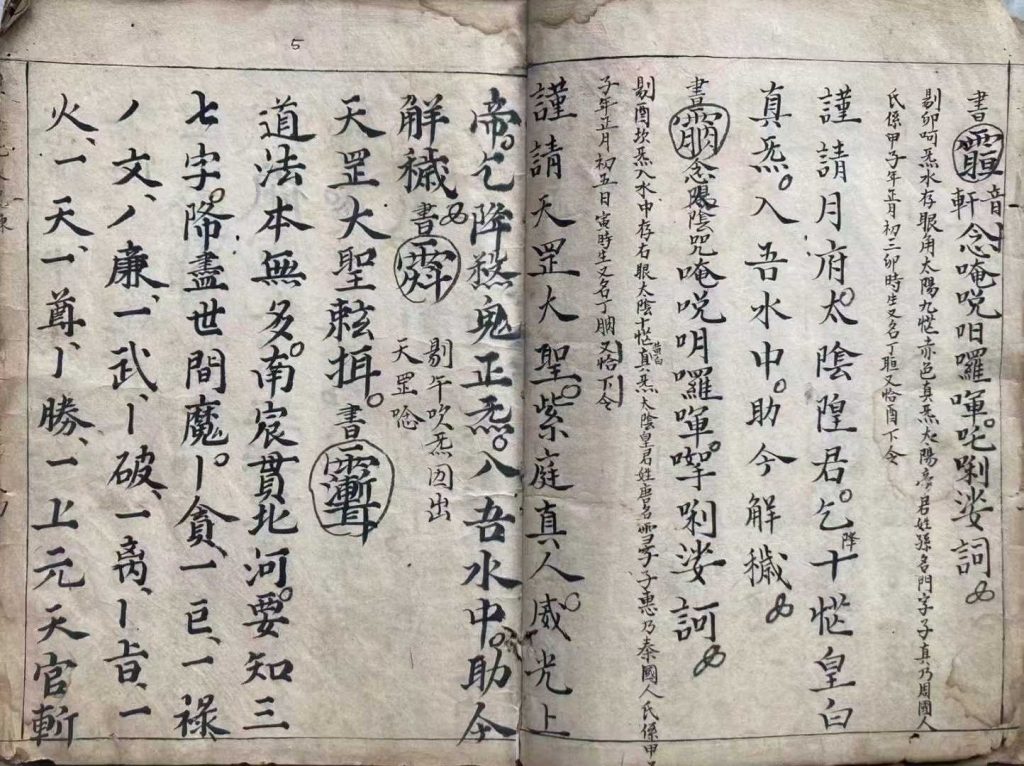 書 音軒念唵呪㫜囉㗲。吒唎娑訶
剔卯呵炁水存眼角太陽九恾赤色真炁太陽帝君姓孫名開字子真乃周國人
氏係甲子年正月初三卯時生又名丁聏又恰酉下令
謹請月府太陰隍君。乞降十恾皇白
真炁。入吾水中。助今解穢。
書 念太陰咒唵呪明囉㗲。唎娑訶
剔酉坎炁入水中存右眼太陰十恾黃白真炁太陰皇君姓唐名字子惠乃秦國人氏係甲
子年正月初五日寅時生又名丁胭又恰下令
謹請天罡大聖。紫庭真人。威光上
帝。乞降殺鬼正炁。入吾水中。助今
解穢。書 剔午吹炁囙出
天罡唸
天罡大聖。書
道法本無多。南宸貫北河。要知三
七字。降盡世間魔。丨貪、一巨、一祿、
丿文、丿廉、一武、丨破、一禼、丨旨、一
火、一天、一尊、丿勝、一上元天官斬
5